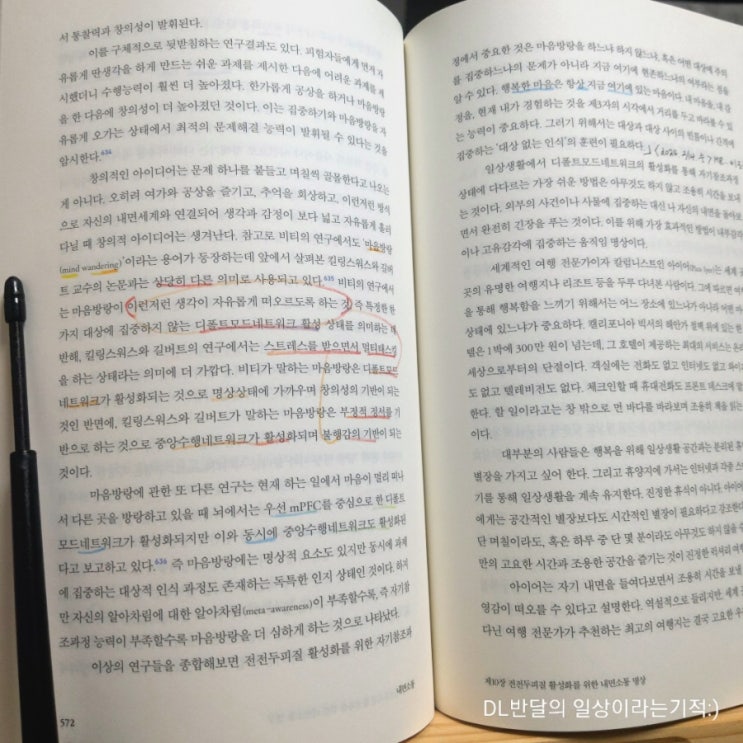 서 통찰력과 창의성이 발휘된다.
이를 구체적으로 뒷받침하는 연구결과도 있다. 피험자들에게 먼저 자
유롭게 딴생각을 하게 만드는 쉬운 과제를 제시한 다음에 어려운 과제를 제
시했더니 수행능력이 훨씬 더 높아졌다. 한가롭게 공상을 하거나 마음방랑
을 한 다음에 창의성이 더 높아졌던 것이다. 이는 집중하기와 마음방랑을 자
유롭게 오가는 상태에서 최적의 문제해결 능력이 발휘될 수 있다는 것을
암시한다.634
창의적인 아이디어는 문제 하나를 붙들고 며칠씩 골몰한다고 나오는
게 아니다. 오히려 여가와 공상을 즐기고, 추억을 회상하고, 이런저런 방식
으로 자신의 내면세계와 연결되어 생각과 감정이 보다 넓고 자유롭게 흘러
다닐 때 창의적 아이디어는 생겨난다. 참고로 비티의 연구에서도 '마음방랑
(mind wandering)'이라는 용어가 등장하는데 앞에서 살펴본 킬링스워스와 길버
트 교수의 논문과는 상당히 다른 의미로 사용되고 있다.635 비티의 연구에서
는 마음방랑이 이런저런 생각이 자유롭게 떠오르도록 하는 것 즉 특정한 한
가지 대상에 집중하지 않는 디폴트모드네트워크 활성 상태를 의미하는 데
반해, 킬링스워스와 길버트의 연구에서는 스트레스를 받으면서 멀티태스킹
을 하는 상태라는 의미에 더 가깝다. 비티가 말하는 마음방랑은 디폴트모드
네트워크가 활성화되는 것으로 명상상태에 가까우며 창의성의 기반이 되는
것인 반면에, 킬링스워스와 길버트가 말하는 마음방랑은 부정적 정서를 기
반으로 하는 것으로 중앙수행네트워크가 활성화되며 불행감의 기반이 되는
것이다.
마음방랑에 관한 또 다른 연구는 현재 하는 일에서 마음이 멀리 떠나
서 다른 곳을 방랑하고 있을 때 뇌에서는 우선 mPFC를 중심으로 한 디폴트
모드네트워크가 활성화되지만 이와 동시에 중앙수행네트워크도 활성화된
다고 보고하고 있다.636 즉 마음방랑에는 명상적 요소도 있지만 동시에 과제
에 집중하는 대상적 인식 과정도 존재하는 독특한 인지 상태인 것이다. 하지
만 자신의 알아차림에 대한 알아차림(meta-awareness)이 부족할수록, 즉 자기참
조과정 능력이 부족할수록 마음방랑을 더 심하게 하는 것으로 나타났다.
이상의 연구들을 종합해보면 전전두피질 활성화를 위한 자기참조과
572
내면소통
정에서 중요한 것은 마음방랑을 하느냐 하지 않느냐, 혹은 어떤 대상에 주의
를 집중하느냐의 문제가 아니라 지금 여기에 현존하느냐의 여부라는 점을
알 수 있다. 행복한 마음은 항상 지금 여기에 있는 마음이다. 내 마음을, 내 감
정을, 현재 내가 경험하는 것을 제3자의 시각에서 거리를 두고 바라볼 수 있
는 능력이 중요하다. 그러기 위해서는 대상과 대상 사이의 빈틈이나 간격에
집중하는 '대상 없는 인식'의 훈련이 필요하다.
일상생활에서 디폴트모드네트워크의 활성화를 통해 자기참조과정
상태에 다다르는 가장 쉬운 방법은 아무것도 하지 않고 조용히 시간을 보내
는 것이다. 외부의 사건이나 사물에 집중하는 대신 나 자신의 내면을 돌아보
면서 완전히 긴장을 푸는 것이다. 이를 위해 가장 효과적인 방법이 내부감각
이나 고유감각에 집중하는 움직임 명상이다.
세계적인 여행 전문가이자 칼럼니스트인 아이어(Pico Iyer)는 세계
곳의 유명한 여행지나 리조트 등을 두루 다녀본 사람이다. 그에 따르면 여행
을 통해 행복함을 느끼기 위해서는 어느 장소에 있느냐가 아니라 어떤 마음
상태에 있느냐가 중요하다. 캘리포니아 빅서의 해안가 절벽 위에 있는 한
텔은 1박에 300만 원이 넘는데, 그 호텔이 제공하는 최대의 서비스는 온
세상으로부터의 단절이다. 객실에는 전화도 없고 인터넷도 없고 와이파
도 없고 텔레비전도 없다. 체크인할 때 휴대전화도 프론트 데스크에 맡
한다. 할 일이라고는 창 밖으로 먼 바다를 바라보며 조용히 책을 읽는
이다.
대부분의 사람들은 행복을 위해 일상생활 공간과는 분리된 휴
별장을 가지고 싶어 한다. 그리고 휴양지에 가서는 인터넷과 각종 스
기를 통해 일상생활을 계속 유지한다. 진정한 휴식이 아니다. 아이어
에게는 공간적인 별장보다도 시간적인 별장이 필요하다고 강조한다
단 며칠이라도, 혹은 하루 중 단 몇 분이라도 아무것도 하지 않을 수
만의 고요한 시간과 조용한 공간을 즐기는 것이 진정한 럭셔리 여행
아이어는 자기 내면을 들여다보면서 조용히 시간을 보낼
영감이 떠오를 수 있다고 설명한다. 역설적으로 들리지만, 세계
다닌 여행 전문가가 추천하는 최고의 여행지는 결국 고요한 우
제10장 전전두피질 활성화를 위한 내면소통 명상
DL반달의 일상이라는기적:)